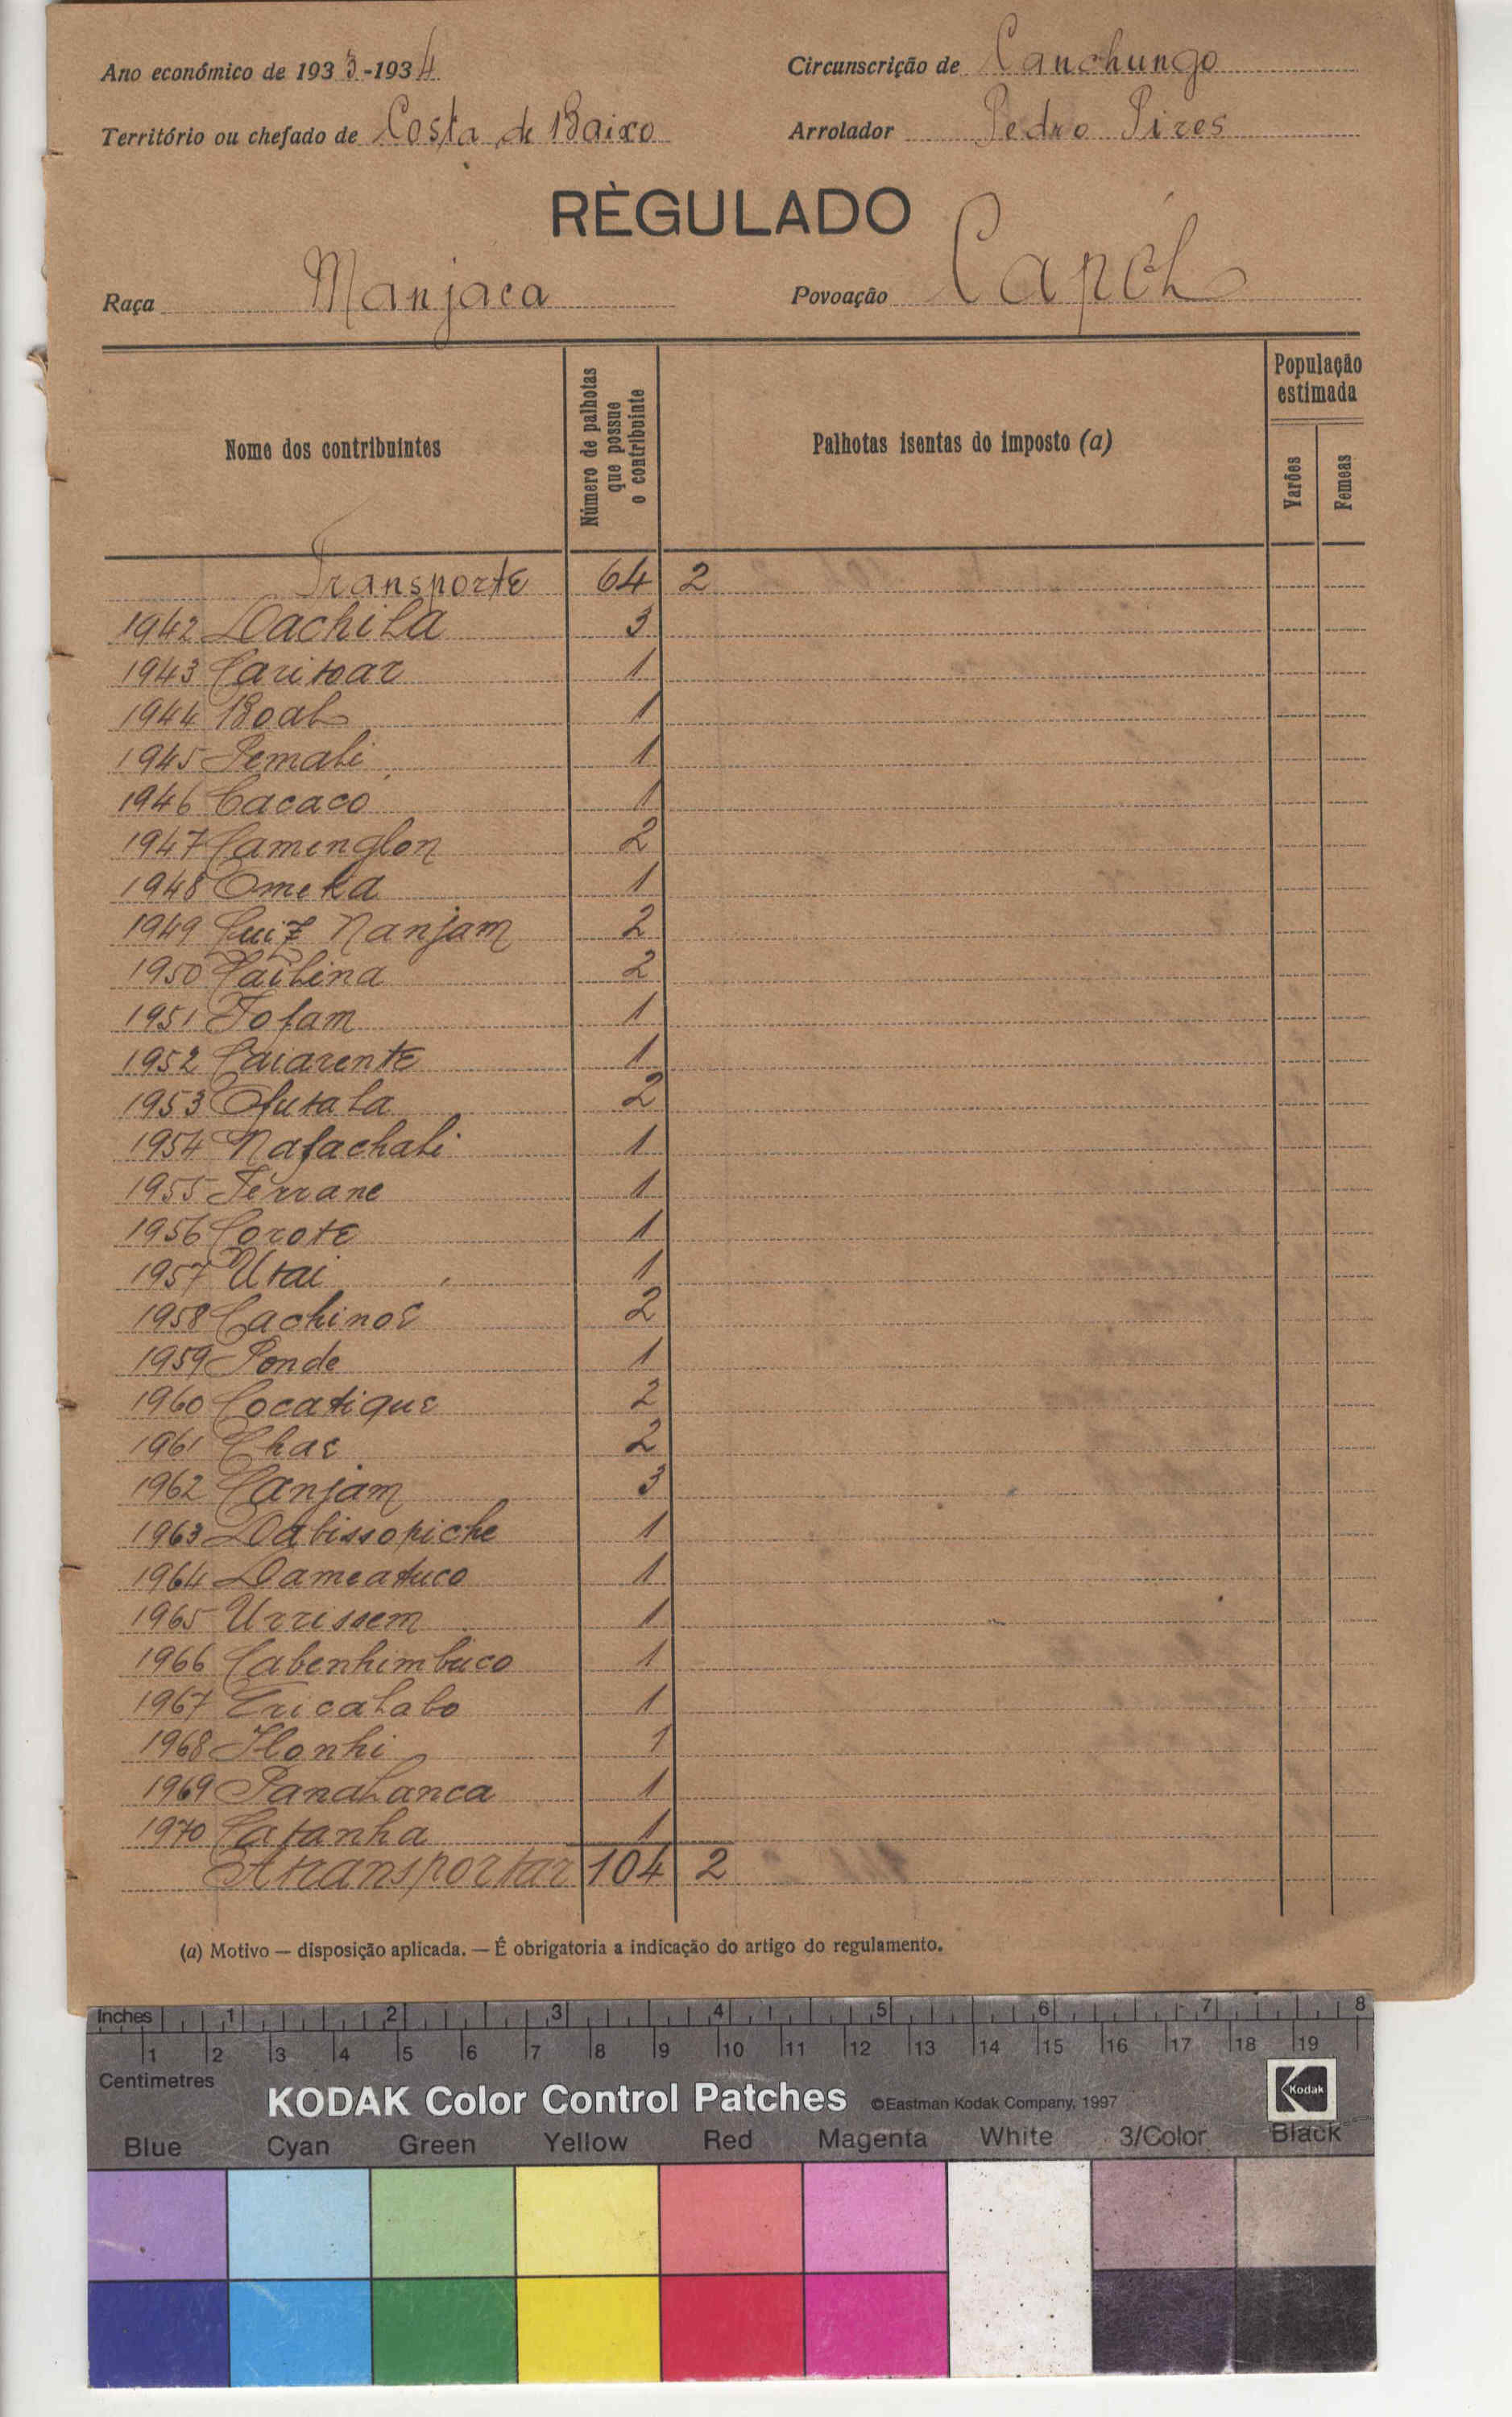 Ano económico de 1933-1934 Circunscrição de Canchungo
Território ou chefado de Costa de Baixo Arrolador Pedro Pires
RÈGULADO
Raça Manjaca Povoação Capol
Nome dos contribuintes Número de palhotas que possue o contribuinte Palhotas isentas do imposto (a) População estimada
Varões Femeas
Transporte 64 2
1942 Dachila 3
1943 Caritoar 1
1944 Boal 1
1945 Pemali 1
1946 Cacaco 1
1947 Camenglon 2
1948 Omeka 1
1949 Luiz Nanjam 2
1950 Cailina 2
1951 Fofam 1
1952 Caiarente 1
1953 Ofutala 2
1954 Nafachali 1
1955 Ferrane 1
1956 Corote 1
1957 Utai 1
1958 Cachinoe 2
1959 Ponde 1
1960 Cocatique 2
1961 Chae 2
1962 Canjam 3
1963 Dabissopiche 1
1964 Dameatuco 1
1965 Urrissem 1
1966 Cabenhimbuco 1
1967 Ericalabo 1
1968 Honhi 1
1969 Panalanca 1
1970 Catanha 1
A transportar 104 2
(a) Motivo — disposição aplicada. — É obrigatoria a indicação do artigo do regulamento.
Inches 1 2 3 4 5 6 7 8
1 2 3 4 5 6 7 8 9 10 11 12 13 14 15 16 17 18 19
Centimetres
KODAK Color Control Patches ©Eastman Kodak Company, 1997 Kodak
Blue Cyan Green Yellow Red Magenta White 3/Color Black